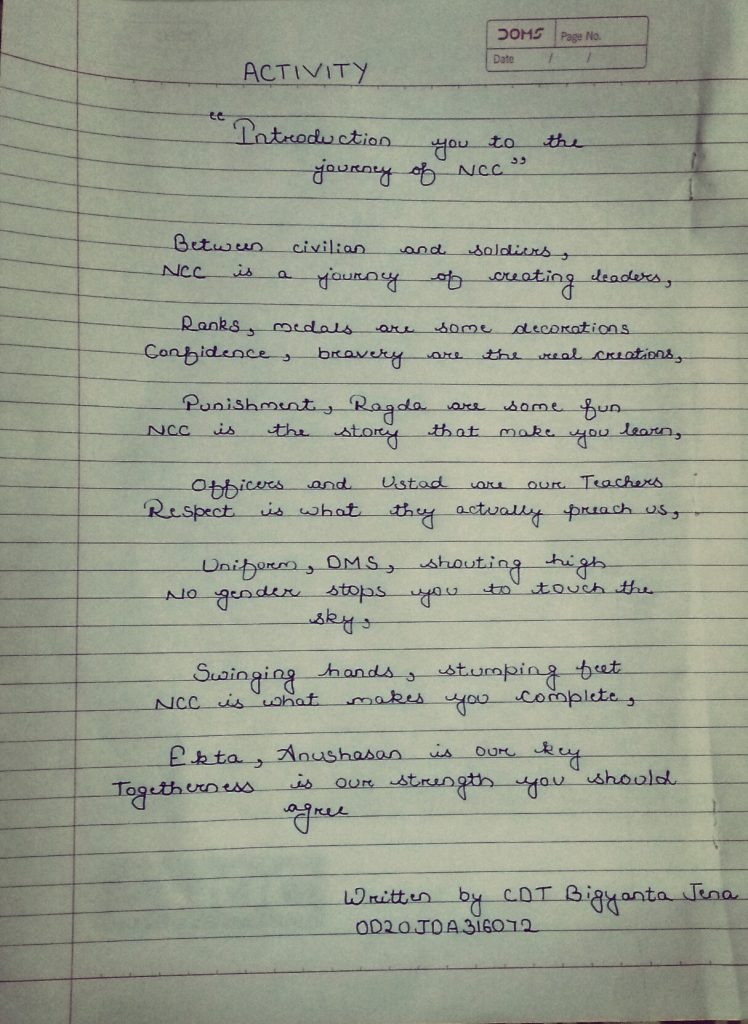 DOMS Page No.
Date / /
ACTIVITY
"Introduction you to the
journey of NCC"
Between civilian and soldiers,
NCC is a journey of creating leaders,
Ranks, medals are some decorations
Confidence, bravery are the real creations,
Punishment, Ragda are some fun
NCC is the story that make you learn,
Officers and Ustad are our Teachers
Respect is what they actually preach us,
Uniform, DMS, shouting high
No gender stops you to touch the
sky,
Swinging hands, stumping feet
NCC is what makes you complete,
Ekta, Anushasan is our key
Togetherness is our strength you should
agree
Written by CDT Bigyanta Jena
OD20JDA316072